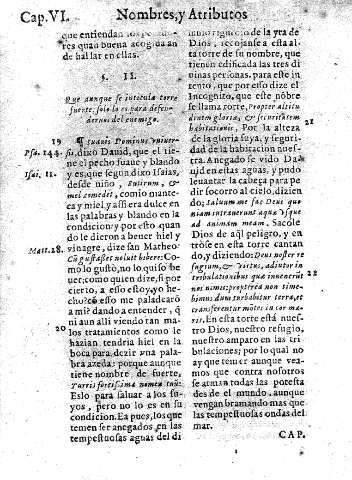 Cap. VI.
Nombres, y Atributos
que entiendan los
res quan buena acogida an
de hallar en ellas.
§. II.
Que aunque se intitula torre
fuerte, solo lo es para defen-
dernos del enemigo.
19
Psa. 144.
Isai. 11.
Matt. 28.
20
Suauis Dominus vniuer-
sis, dixo Dauid, que el tie-
ne el pecho suaue y blando
y es, que segun dixo Isaias,
desde niño, Butirum, &
mel comedit, como mante-
ca y miel, y assi era dulce en
las palabras y blando en la
condicion: y por esto quan
do le dieron a beuer hiel y
vinagre, dize san Matheo:
Cũ gustasset noluit bibere: Co-
mo lo gustò, no lo quiso be
uer; como quien dize, si por
cierto, a esso estoy yo he-
cho? cõ esso me paladearõ
a mi? dando a entender, q̃
ni aun alli viendo tan ma-
los tratamientos como le
hazian tendria hiel en la
boca para dezir vna pala-
bra azeda: porque aunque
tiene nombre de fuerte,
Turris fortissima nomen tuũ:
Eslo para saluar a los su-
yos, pero no lo es en su
condicion. Ea pues, los que
temen ser anegados en las
tempestuosas aguas del di
luuio riguroso de la yra de
Dios, recojanse a esta al-
ta torre de su nombre, que
tienen edificada las tres di
uinas personas. para este in
tento, que por esso dize el
Incognito, que este nõbre
se llama torre, Propter altitu
dinem gloriæ, & securitatem
habitationis, Por la alteza
de la gloria suya, y seguri-
dad de la habitacion nues-
tra. Anegado se vido Da-
uid en estas aguas, y pudo
leuantar la cabeça para pe
dir socorro al cielo, dizien
do; Saluum me fac Deus quo
niam intrauerunt aquæ vsque
ad animam meam. Sacòle
Dios de aq̃l peligro, y en-
tròse en esta torre cantan
do, y diziendo; Deus noster re
fugium, & virtus, adiutor in
tribulationibus quæ inuenerũt
nos nimis: propterea non time-
bimus dum turbabitur terra, et
transferentur montes in cor ma-
ris. En esta torre està nues-
tro Dios, nuestro refugio,
nuestro amparo en las tri-
bulaciones; por lo qual no
ay que temer aunque vea-
mos que contra nosotros
se arman todas las potesta
des de el mundo. aunque
vengan bramando mas que
las tempestuosas ondas del
mar.
21
22
CAP.